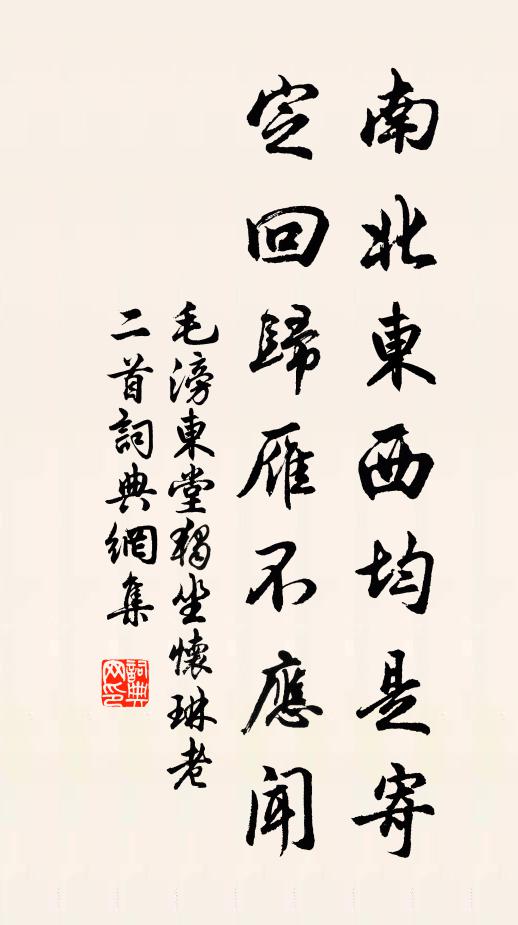 南北東西均是寄
定回歸雁不應聞
毛滂東堂獨坐懷琳老
二首詞典網集
詞典网印